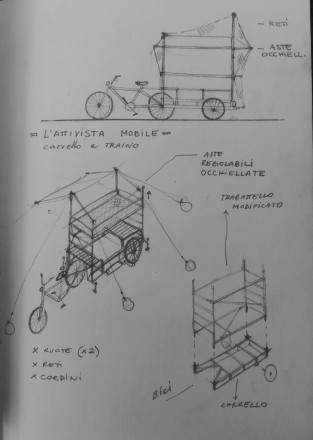 - RETI
- ASTE
OCCHIELL.
= L'ATTIVISTA MOBILE =
carrello a TRAINO
ASTE
REGOLABILI
OCCHIELLATE
TRABATTELLO
MODIFICATO
x RUOTE (x2)
x RETI
x CORDINI
BICI
CARRELLO